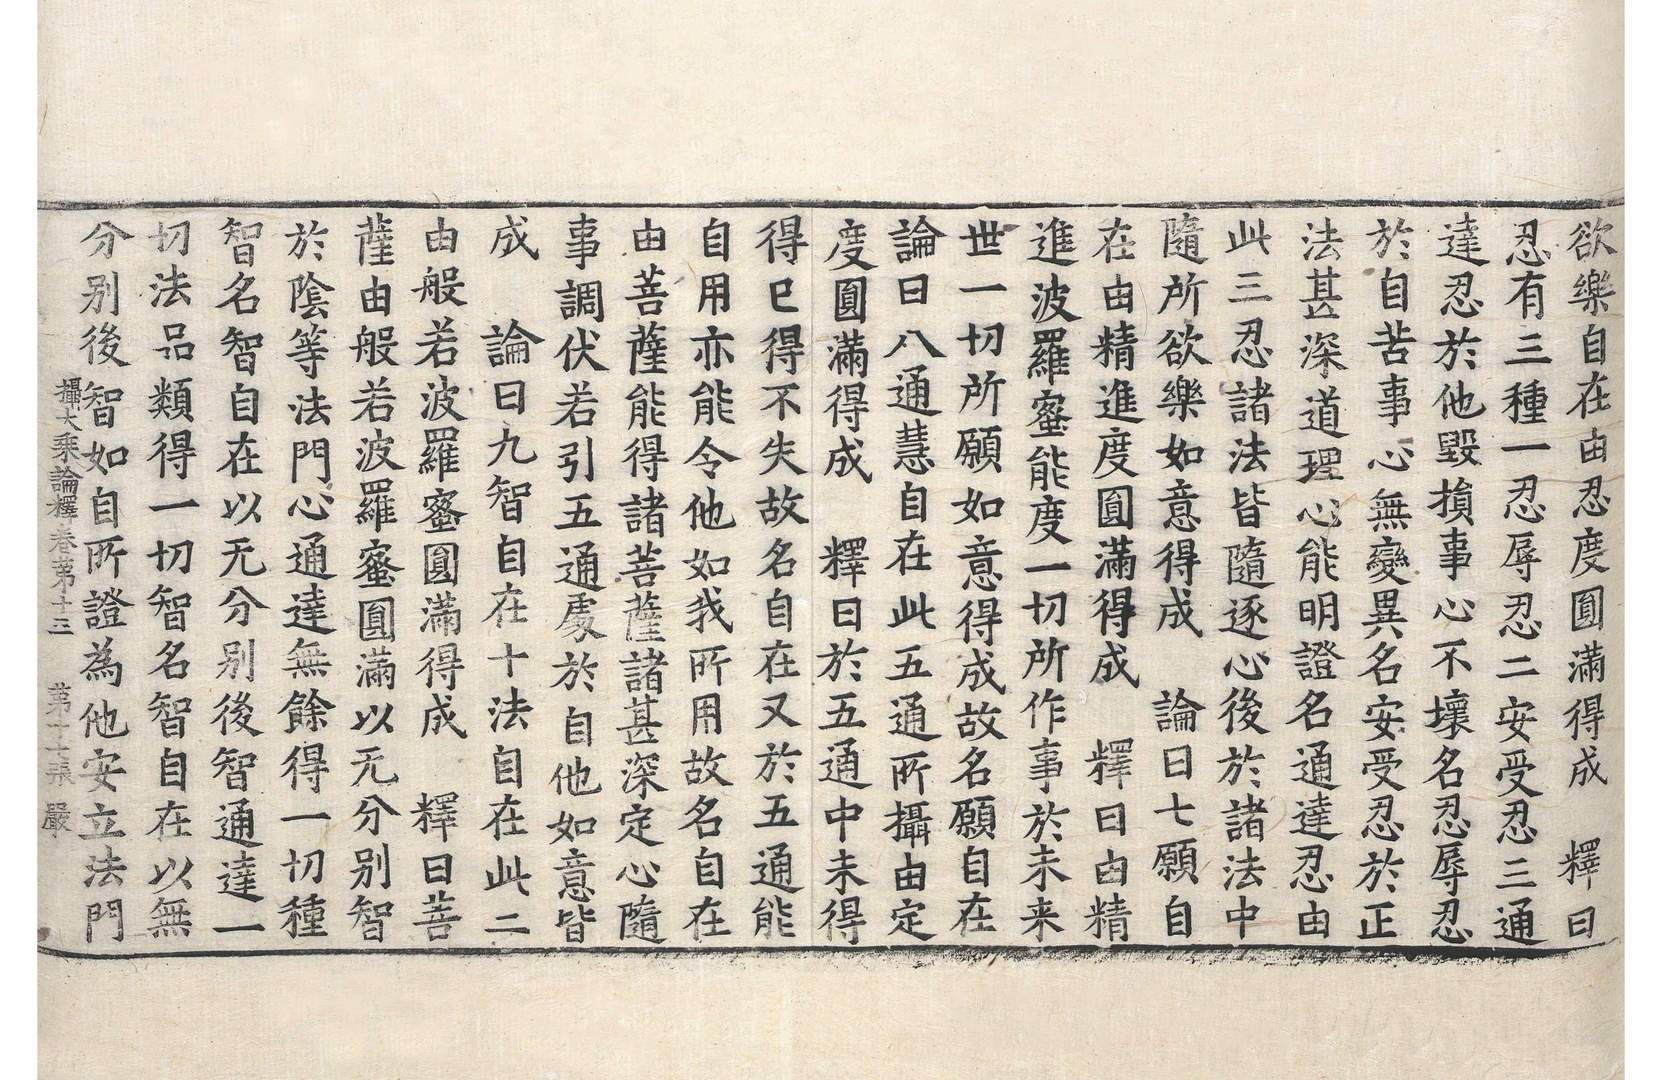 欲樂自在由忍度圓滿得成　釋曰
忍有三種一忍辱忍二安受忍三通
達忍於他毀損事心不壞名忍辱忍
於自苦事心無變異名安受忍於正
法甚深道理心能明證名通達忍由
此三忍諸法皆隨逐心後於諸法中
隨所欲樂如意得成　論曰七願自
在由精進度圓滿得成　釋曰由精
進波羅蜜能度一切所作事於未来
世一切所願如意得成故名願自在
論曰八通慧自在此五通所攝由定
度圓滿得成　釋曰於五通中未得
得已得不失故名自在又於五通能
自用亦能令他如我所用故名自在
由菩薩能得諸菩薩諸甚深定心隨
事調伏若引五通處於自他如意皆
成　論曰九智自在十法自在此二
由般若波羅蜜圓滿得成　釋曰菩
薩由般若波羅蜜圓滿以无分別智
於陰等法門心通達無餘得一切種
智名智自在以无分別後智通達一
切法品類得一切智名智自在以無
分別後智如自所證為他安立法門
攝大乘論釋卷第十三　第十七張　嚴